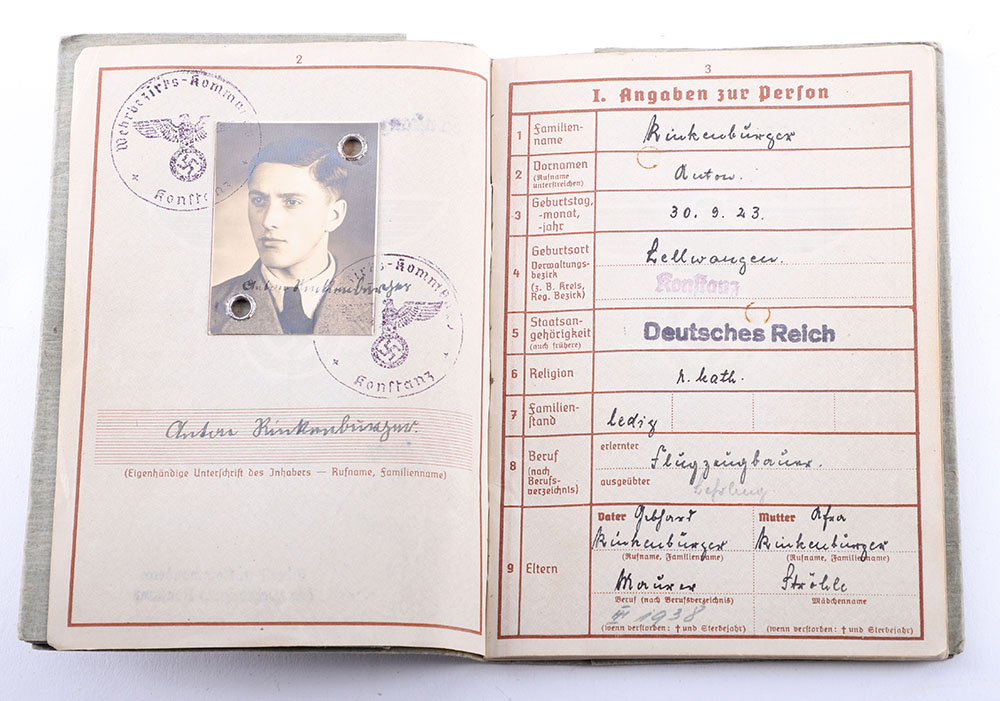 2
Wehrbezirks-Komma
Konstanz
Anton Rinkenburger
irks-Komm
Konstanz
Anton Rinkenburger.
(Eigenhändige Unterschrift des Inhabers — Rufname, Familienname)
3
I. Angaben zur Person
1 Familien-
name
Rinkenburger
2 Vornamen
(Rufname
unterstreichen)
Anton.
3 Geburtstag,
-monat,
-jahr
30. 9. 23.
4 Geburtsort
Verwaltungs-
bezirk
(z. B. Kreis,
Reg. Bezirk)
Zellwangen.
Konstanz
5 Staatsan-
gehörigkeit
(auch frühere)
Deutsches Reich
6 Religion
r. kath.
7 Familien-
stand
ledig
8 Beruf
(nach
Berufs-
verzeichnis)
erlernter
Flugzeugbauer.
ausgeübter
Lehrling.
9 Eltern
Vater Gebhard
Rinkenburger
(Rufname, Familienname)
Maurer
Beruf (nach Berufsverzeichnis)
1938
(wenn verstorben: † und Sterbejahr)
Mutter Afra
Rinkenburger
(Rufname, Familienname)
Ströhle
Mädchenname
(wenn verstorben: † und Sterbejahr)